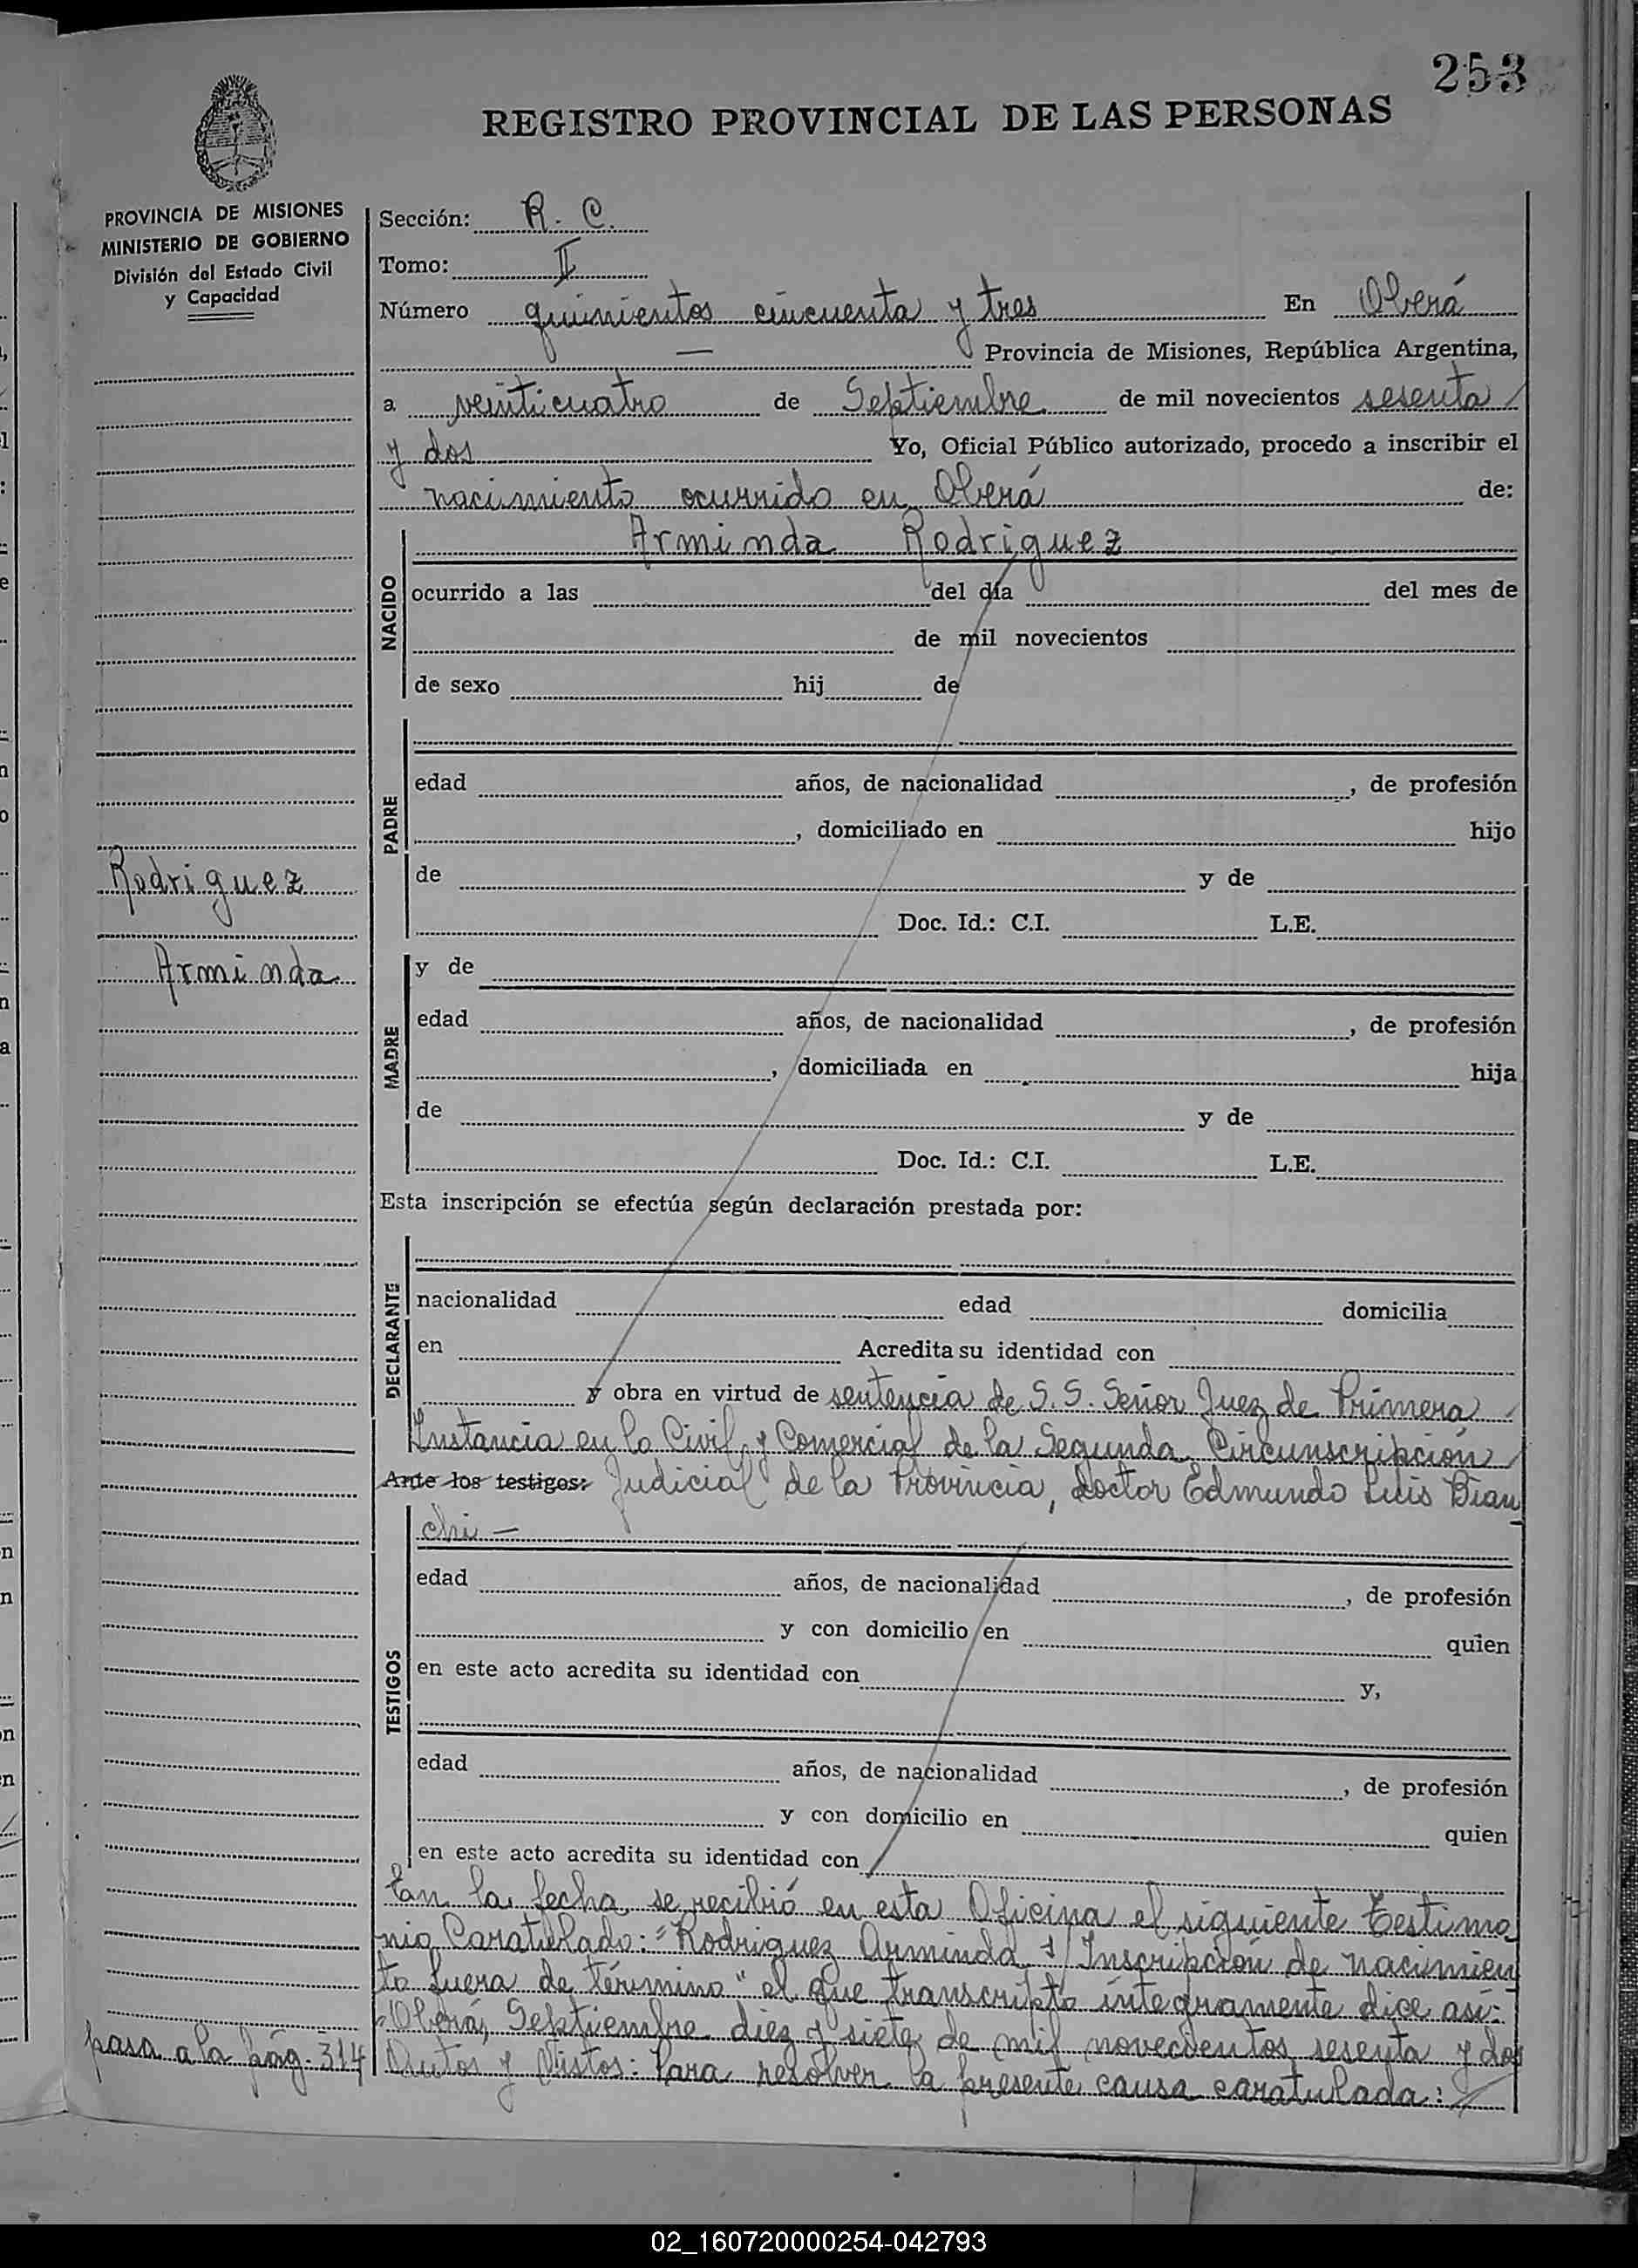 253
REGISTRO PROVINCIAL DE LAS PERSONAS
PROVINCIA DE MISIONES
MINISTERIO DE GOBIERNO
División del Estado Civil
y Capacidad
Sección: R. C.
Tomo: II
Número quinientos cincuenta y tres En Oberá
— Provincia de Misiones, República Argentina,
a veinticuatro de Septiembre de mil novecientos sesenta
y dos Yo, Oficial Público autorizado, procedo a inscribir el
nacimiento ocurrido en Oberá de:
NACIDO
Arminda Rodriguez
ocurrido a las del día del mes de
de mil novecientos
de sexo hij de
PADRE
edad años, de nacionalidad , de profesión
, domiciliado en hijo
de y de
Doc. Id.: C.I. L.E.
Rodriguez
Arminda
MADRE
y de
edad años, de nacionalidad , de profesión
, domiciliada en hija
de y de
Doc. Id.: C.I. L.E.
Esta inscripción se efectúa según declaración prestada por:
DECLARANTE
nacionalidad edad domicilia
en Acredita su identidad con
y obra en virtud de sentencia de S. S. Señor Juez de Primera
Instancia en lo Civil y Comercial de la Segunda Circunscripción
Ante los testigos: Judicial de la Provincia, doctor Edmundo Luis Bian
chi —
TESTIGOS
edad años, de nacionalidad , de profesión
y con domicilio en quien
en este acto acredita su identidad con y,
edad años, de nacionalidad , de profesión
y con domicilio en quien
en este acto acredita su identidad con
la fecha se recibió en esta Oficina el siguiente testimo
nio Caratulado: "Rodriguez Arminda s/ Inscripción de nacimien
to fuera de término" el que transcripto íntegramente dice así:
"Oberá, Septiembre diez y siete de mil novecientos sesenta y dos
Autos y Vistos: Para resolver la presente causa caratulada:
pasa a la pág. 314
02_160720000254-042793